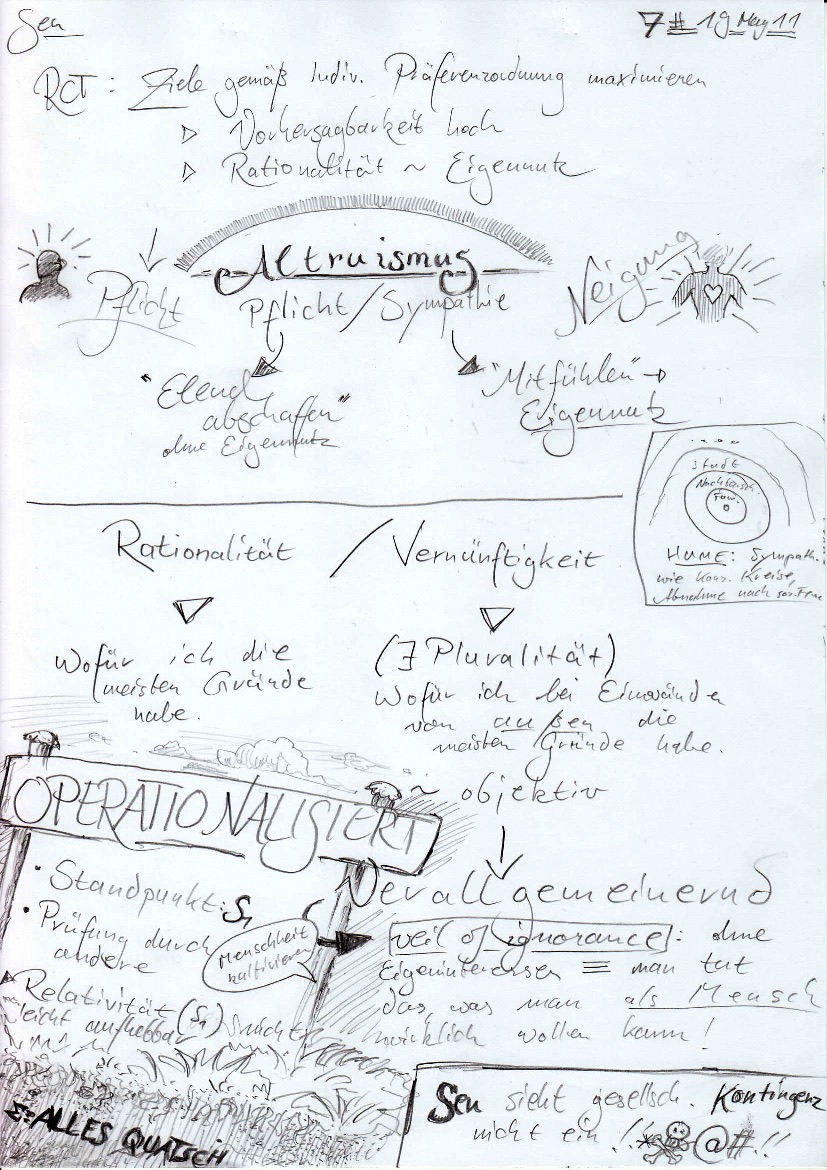 Sen
7# 19 May 11
RCT: Ziele gemäß Indiv. Präferenzordnung maximieren
▷ Vorhersagbarkeit hoch
▷ Rationalität ~ Eigennutz
Altruismus
Pflicht
Neigung
Pflicht/Sympathie
"Elend
abschaffen"
ohne Eigennutz
"Mitfühlen" →
Eigennutz
Stadt
Nachbarsch.
Fam.
HUME: Sympath.
wie konz. Kreise,
Abnahme nach
Rationalität / Vernünftigkeit
Wofür ich die
meisten Gründe
habe.
(∃ Pluralität)
Wofür ich bei Einwänden
von außen die
meisten Gründe habe.
~ objektiv
OPERATIONALISIERT
• Standpunkt: S₁
• Prüfung durch
andere
Relativität (S₁) nicht
leicht aufhebbar
Menschheit
kultivieren
Verallgemeinernd
veil of ignorance: ohne
Eigeninteressen ≡ man tut
das, was man als Mensch
wirklich wollen kann!
Σ: ALLES QUATSCH
Sen sieht gesellsch. Kontingenz
nicht ein !! @#!!